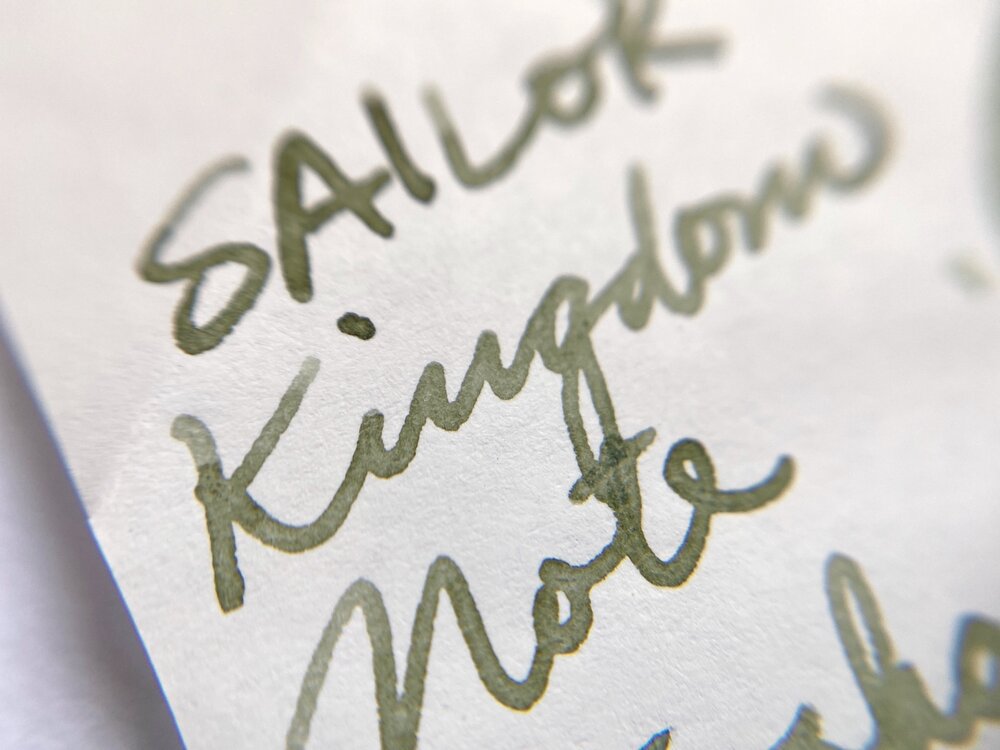 SAILOR
Kingdom
Note